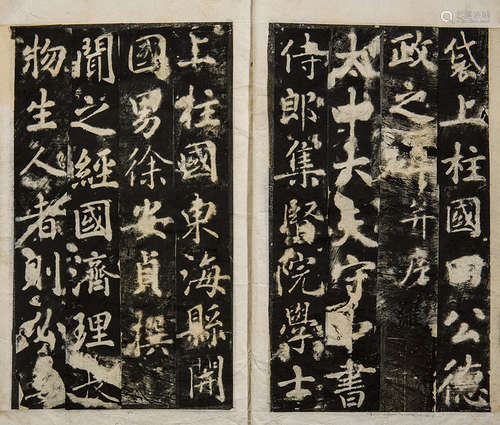 袋上柱國田公德
政之碑并序
太中大夫守中書
侍郎集賢院學士
上柱國東海縣開
國男徐安貞撰
聞之經國濟理長
物生人者則必